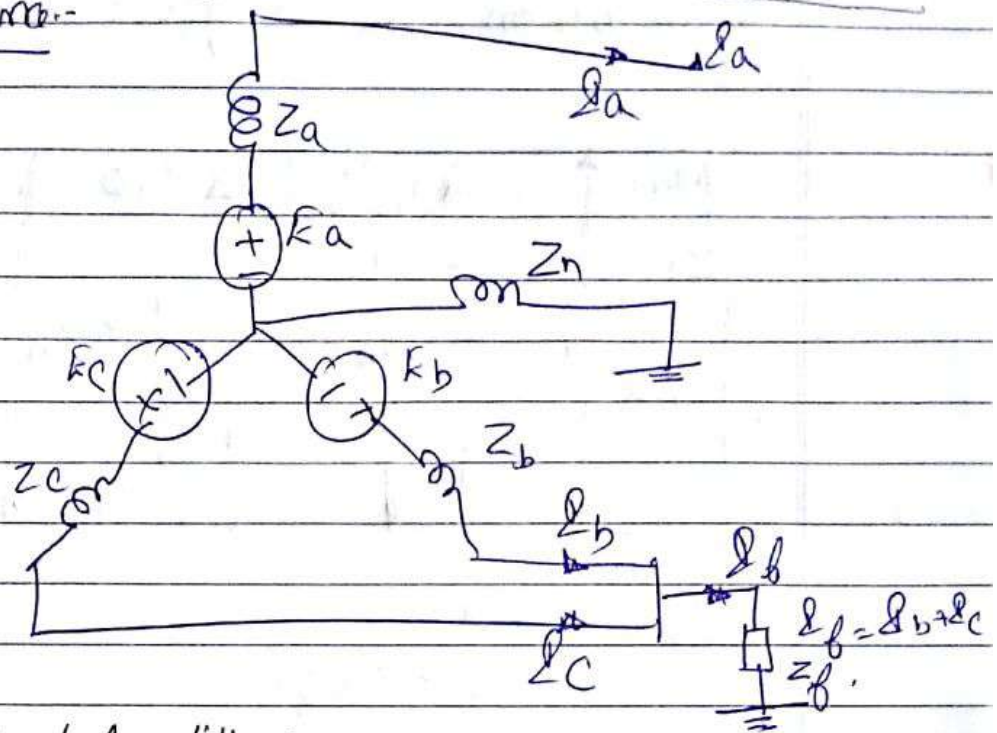 Ia
Ia
Za
+
Ea
-
Zn
Ec
Eb
+ -
- +
Zc
Zb
Ib
If
If = Ib + Ic
Ic
Zf.